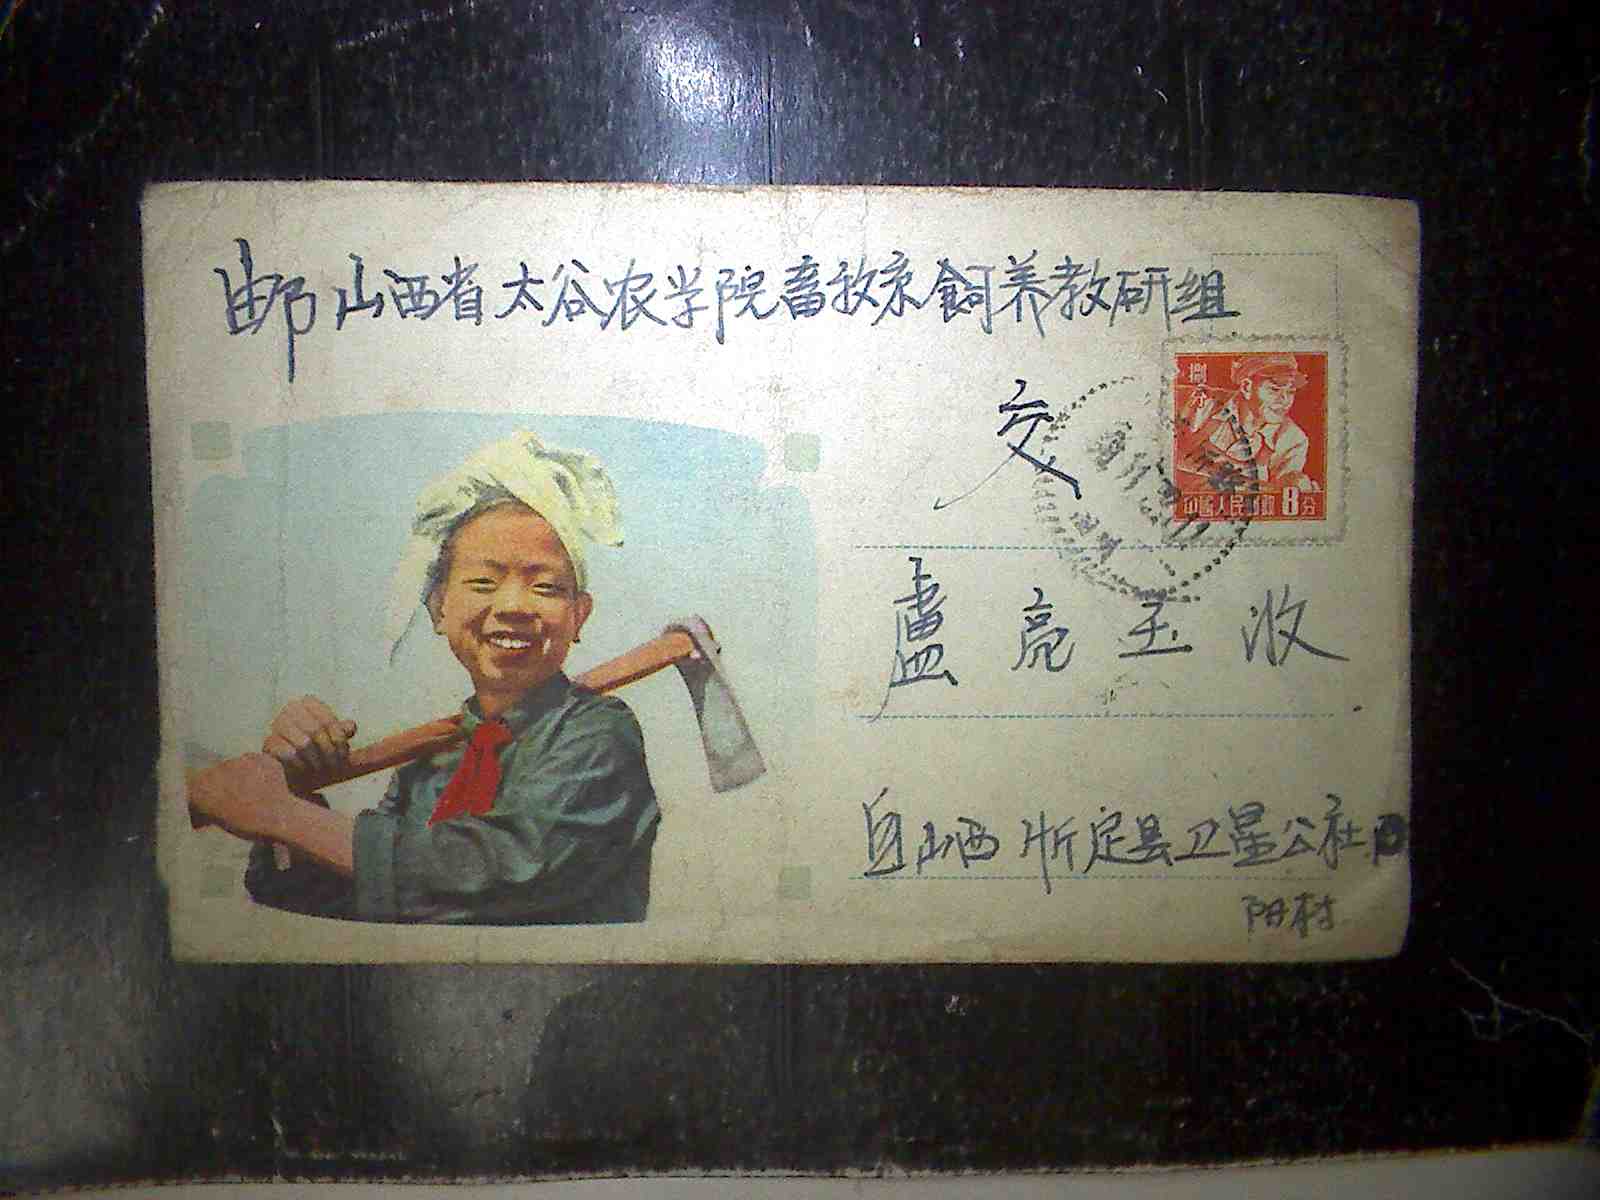 邮山西省太谷农学院畜牧系飼养教研组
交
捌分
中國人民邮政 8分
盧亮玉收
自山西忻定县卫星公社
阳村